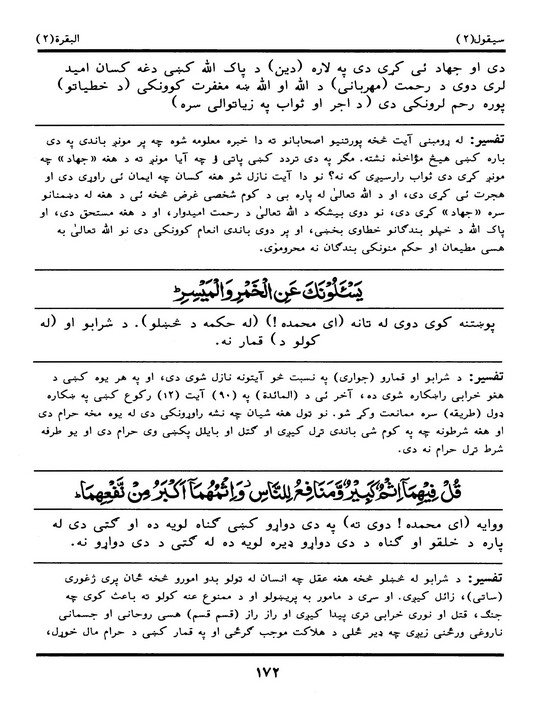 سيقول(٢) البقرة(٢)
دی او جهاد ئی کړی دی په لاره (دين) د پاک الله کښی دغه کسان اميد
لری دوی د رحمت (مهربانی) د الله او الله ښه مغفرت کوونکی (د خطياتو)
پوره رحم لرونکی دی (د اجر او ثواب په زياتوالی سره)
تفسير: له ړومبنی آيت څخه پورتنيو اصحابانو ته دا خبره معلومه شوه چه پر مونږ باندی په دی
باره کښی هيڅ مؤاخذه نشته. مگر په دی تردد کښی پاتی ؤ چه آيا مونږ ته د هغه «جهاد» چه
مونږ کړی دی ثواب رارسيږی که نه؟ نو دا آيت نازل شو هغه کسان چه ايمان ئی راوړی دی او
هجرت ئی کړی دی، او د الله تعالیٰ له پاره بی د کوم شخصی غرض څخه ئی د هغه له دښمنانو
سره «جهاد» کړی دی، نو دوی بيشکه د الله تعالیٰ د رحمت اميدوار، او د هغه مستحق دی، او
پاک الله د خپلو بندگانو خطاوی بخښی، او پر دوی باندی انعام کوونکی دی نو الله تعالیٰ به
هسی مطيعان او حکم منونکی بندگان نه محروموی.
يَسْـَٔلُوْنَكَ عَنِ الْخَمْرِ وَالْمَيْسِرِؕ
پوښتنه کوی دوی له تانه (ای محمده!) (له حکمه د څښلو). د شرابو او (له
کولو د) قمار نه.
تفسير: د شرابو او قمارو (جواری) په نسبت څو آيتونه نازل شوی دی، او په هر يوه کښی د
هغو خرابی راښکاره شوی ده، آخر ئی د (المائدة) په (٩٠) آيت (١٢) رکوع کښی په ښکاره
ډول (طريقه) سره ممانعت وکړ شو. نو ټول هغه شيان چه نشه راوړونکی دی له يوه مخه حرام دی
او هغه شرطونه چه په کوم شی باندی تړل کيږی او گټل او بايلل پکښی وی حرام دی او يو طرفه
شرط تړل حرام نه دی.
قُلْ فِيْهِمَآ اِثْمٌ كَبِيْرٌ وَّمَنَافِعُ لِلنَّاسِ ز وَاِثْمُهُمَآ اَكْبَرُ مِنْ نَّفْعِهِمَاؕ
ووايه (ای محمده! دوی ته) په دی دواړو کښی گناه لويه ده او گټی دی له
پاره د خلقو او گناه د دی دواړو ډيره لويه ده له گټی د دی دواړو نه.
تفسير: د شرابو له څښلو څخه هغه عقل چه انسان له ټولو بدو امورو څخه ځان پری ژغوری
(ساتی)، زائل کيږی. او سړی د مامور به پريښولو او د ممنوع عنه کولو ته باعث کوی چه
جنگ، قتل او نوری خرابی تری پيدا کيږی او راز راز (قسم قسم) هسی روحانی او جسمانی
ناروغی ورڅنی زيږی چه ډير ځلی د هلاکت موجب گرځی او په قمار کښی د حرام مال خوړل،
١٧٢